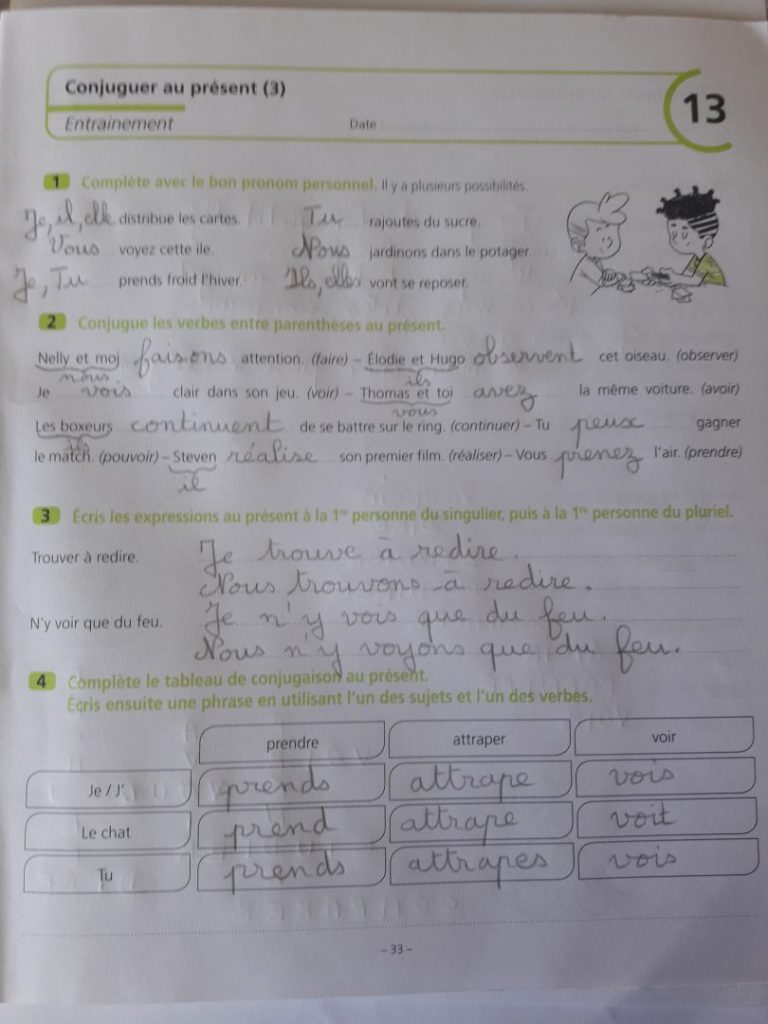 Conjuguer au présent (3)
13
Entrainement Date :
1 Complète avec le bon pronom personnel. Il y a plusieurs possibilités.
Je, il, elle distribue les cartes. Tu rajoutes du sucre.
Vous voyez cette ile. Nous jardinons dans le potager.
Je, Tu prends froid l'hiver. Ils, elles vont se reposer.
2 Conjugue les verbes entre parenthèses au présent.
Nelly et moi faisons attention. (faire) – Élodie et Hugo observent cet oiseau. (observer)
nous ils
Je vois clair dans son jeu. (voir) – Thomas et toi avez la même voiture. (avoir)
vous
Les boxeurs continuent de se battre sur le ring. (continuer) – Tu peux gagner
ils
le match. (pouvoir) – Steven réalise son premier film. (réaliser) – Vous prenez l'air. (prendre)
il
3 Écris les expressions au présent à la 1re personne du singulier, puis à la 1re personne du pluriel.
Trouver à redire. Je trouve à redire.
Nous trouvons à redire.
N'y voir que du feu. Je n'y vois que du feu.
Nous n'y voyons que du feu.
4 Complète le tableau de conjugaison au présent.
Écris ensuite une phrase en utilisant l'un des sujets et l'un des verbes.
prendre attraper voir
Je / J' prends attrape vois
Le chat prend attrape voit
Tu prends attrapes vois
– 33 –